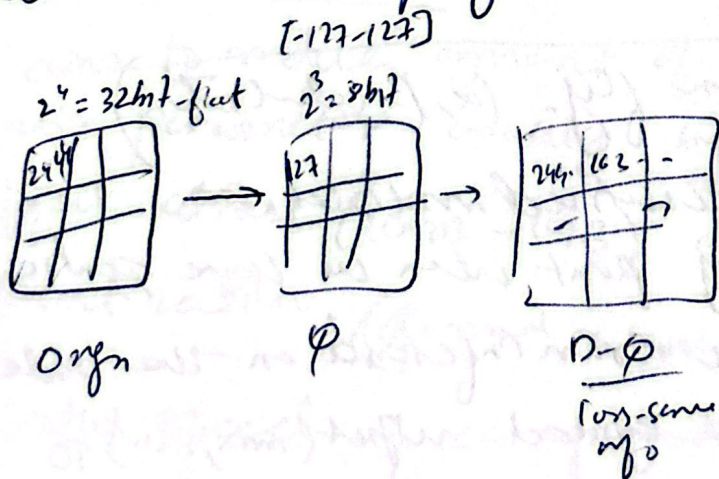 [-127-127]
2⁴ = 32bit-float
2³ = 8bit
127
244. 163 - -
Orgn
φ
D-φ
loss-some
info